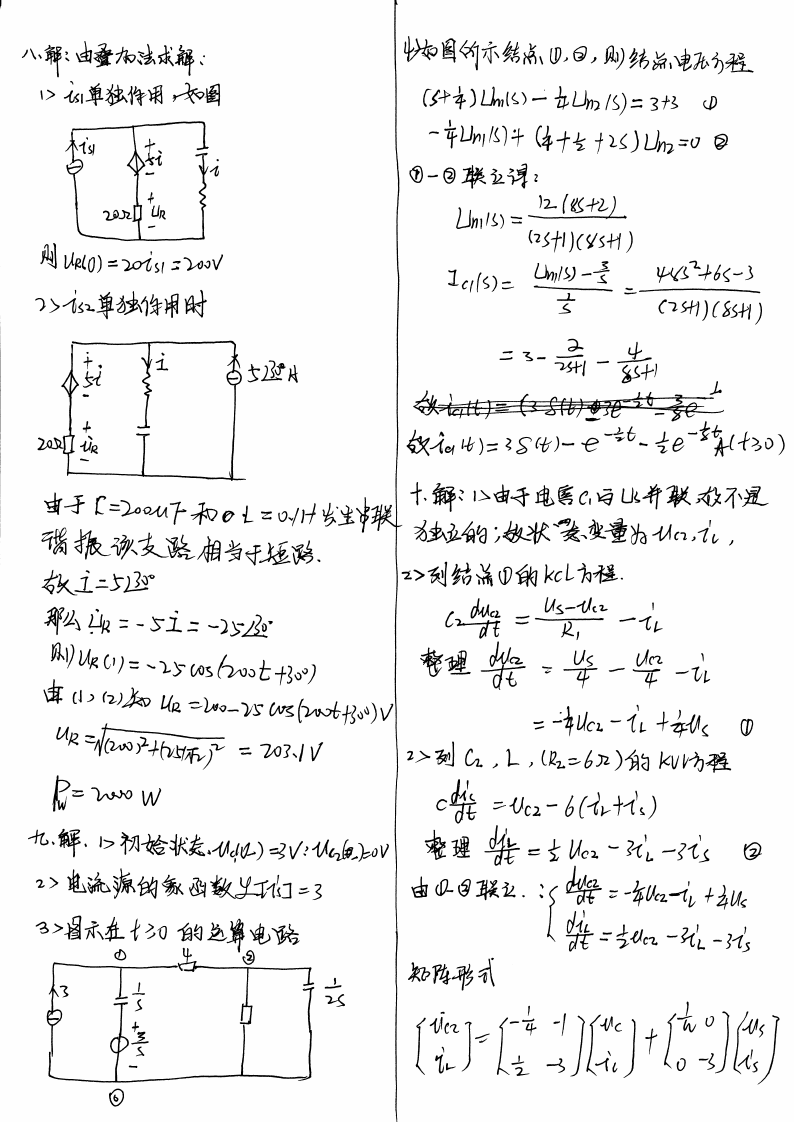 八、解:由叠加法求解:
1> is1单独作用,如图
is1
+
5i
-
i
20Ω
+
UR
-
则 UR(0)=20is1=200V
2> is2单独作用时
+
5i
-
i
5∠30°A
20Ω
+
UR
-
由于C=200μF和L=0.1H发生串联
谐振该支路相当于短路.
故 İ=5∠30°
那么 U̇R=-5İ=-25∠30°
则 UR(1)=-25cos(200t+30°)
由(1)、(2)知 UR=200-25cos(200t+30°)V
UR=√((200)²+(25/√2)²) = 203.1V
Pw=2000W
九、解.1>初始状态.Uc1(0-)=3V;Uc2(0-)=0V
2>电流源的象函数为I(s)=3
3>图示在t≥0的运算电路
① 4 ②
3
1/S
1/2S
+
3/S
-
⓪
4>如图所示结点①,②,则结点电压方程
(S+1/4)Un1(S)-1/4Un2(S)=3+3 ①
-1/4Un1(S)+(1/4+1/2+2S)Un2=0 ②
①-②联立得:
Un1(S)=12(8S+2)/(2S+1)(8S+1)
Ic1(S)=(Un1(S)-3/S)/(1/S)=(48S²+6S-3)/(2S+1)(8S+1)
=3-2/(2S+1)-4/(8S+1)
故ic1(t)=3δ(t)-e^(-1/2t)-1/2e^(-1/8t)A(t≥0)
十.解:1>由于电容C1与Us并联故不是
独立的;故状态变量为uc2,iL,
2>列结点①的KCL方程.
C2 duc2/dt=(us-uc2)/R1-iL
整理 duc2/dt=us/4-uc2/4-iL
=-1/4uc2-iL+1/4us ①
2>列C2,L,(R2=6Ω)的KVL方程
C diL/dt=uc2-6(iL+is)
整理 diL/dt=1/2uc2-3iL-3is ②
由①②联立.:{duc2/dt=-1/4uc2-iL+1/4us
diL/dt=1/2uc2-3iL-3is
矩阵形式
[u̇c2]=[-1/4 -1][uc]+[1/4 0][us]
[i̇L] [1/2 -3][iL] [0 -3][is]